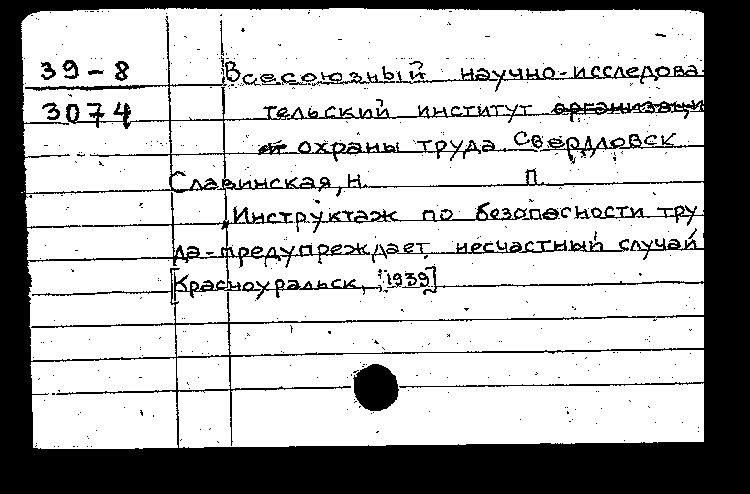 39-8 Всесоюзный научно-исследова-
3074 тельский институт организаци
и охраны труда. Свердловск
Славинская, Н. П.
Инструктаж по безопасности тру
да-предупреждает несчастный случай
[Красноуральск, 1939]